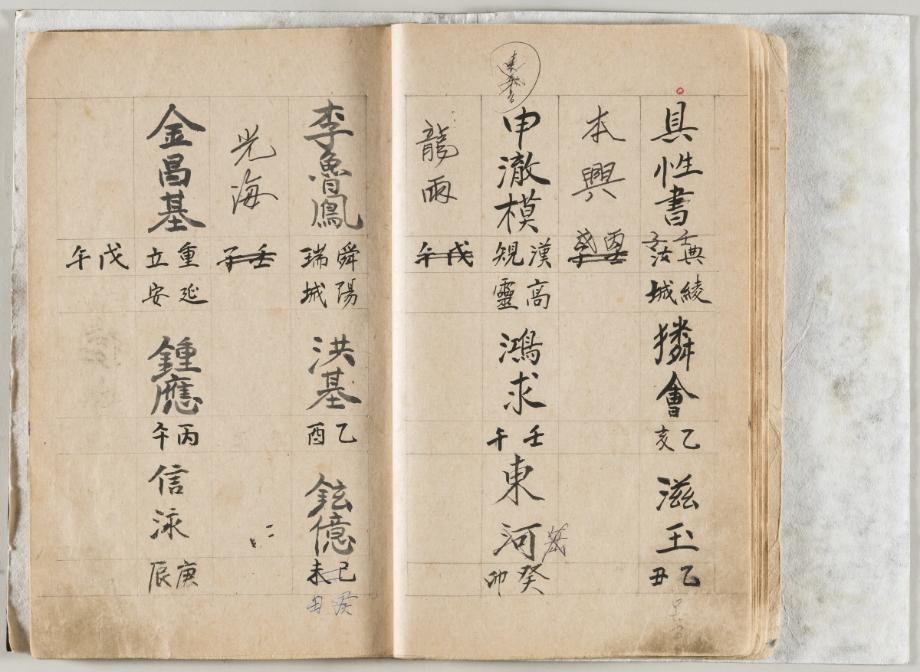 具性書 綾城 獜會 乙亥 滋玉 乙丑
本興
申澈模 漢規 高靈 鴻求 壬午 東河 癸卯
龍雨 戊午
李魯鳳 舜瑞 陽城 洪基 乙酉 鉉億 己未 癸丑
光海 壬子
金昌基 重立 延安 鍾應 丙午 信泳 庚辰
戊午